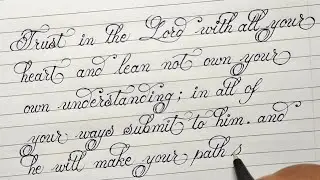 Trust in the Lord with all your
heart and lean not own your
own understanding; in all of
your ways submit to him. and
he will make your path s